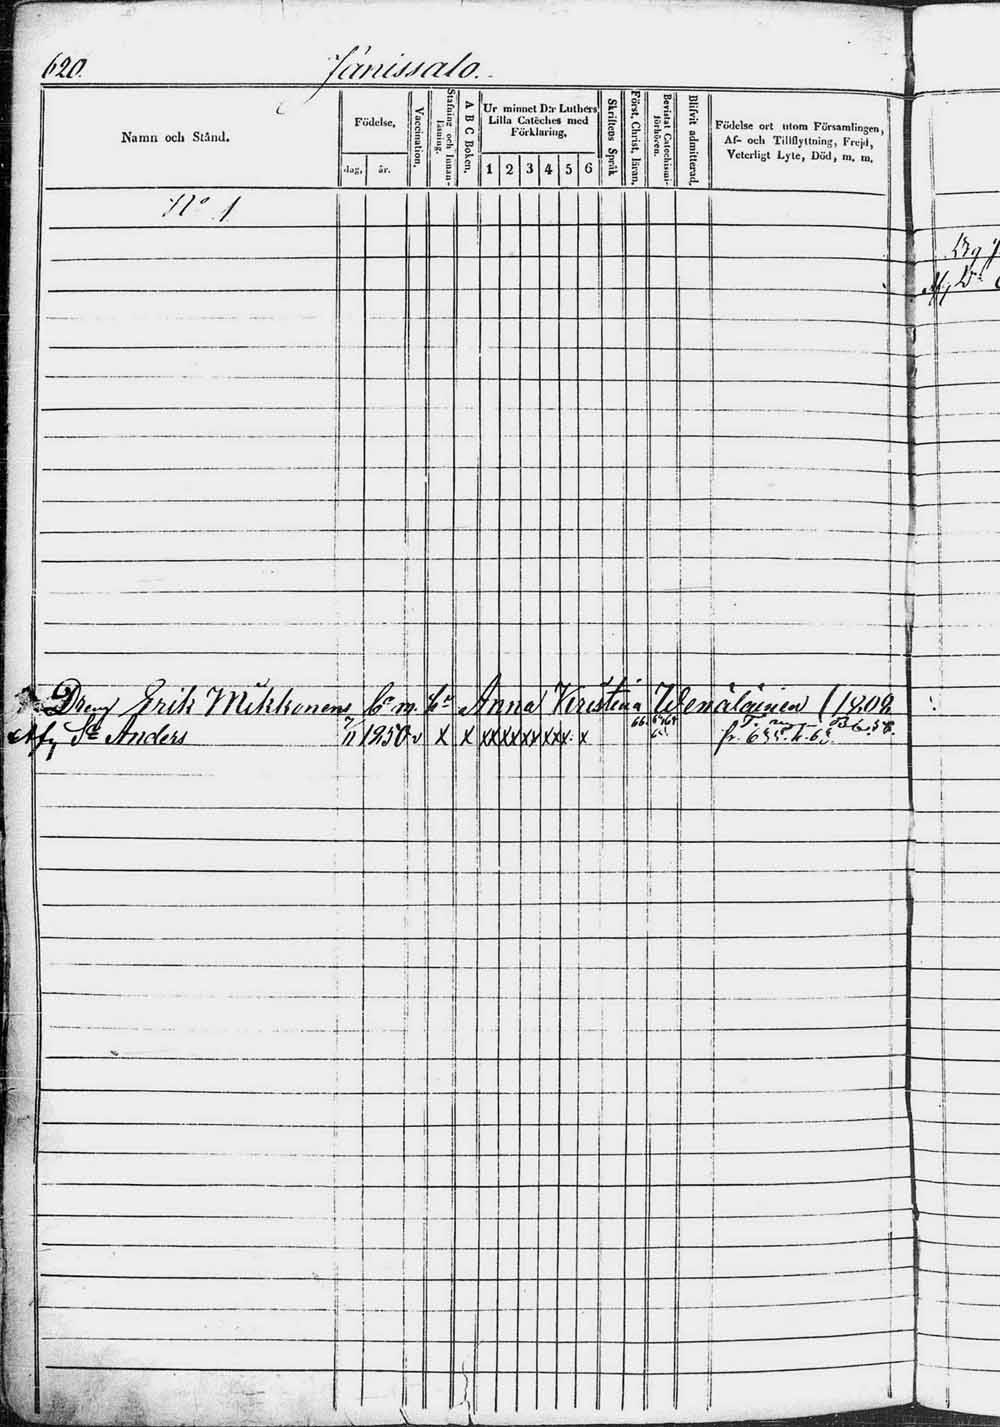 620.
Jänissalo.
Namn och Stånd.
Födelse,
dag, år.
Vaccination.
Stafning och Innan-läsning.
A B C Boken.
Ur minnet D:r Luthers
Lilla Catéches med
Förklaring,
1 2 3 4 5 6
Skriftens Språk
Först. Christ. läran.
Bevistat Catechismi-förhören.
Blifvit admitterad.
Födelse ort utom Församlingen,
Af- och Tillflyttning, Frejd,
Veterligt Lyte, Död, m. m.
No 1
Dreng Erik Mikkonens Anna Kristina Wenäläinen
Anders 7/11 1850 v x x xx xx xx xx x x